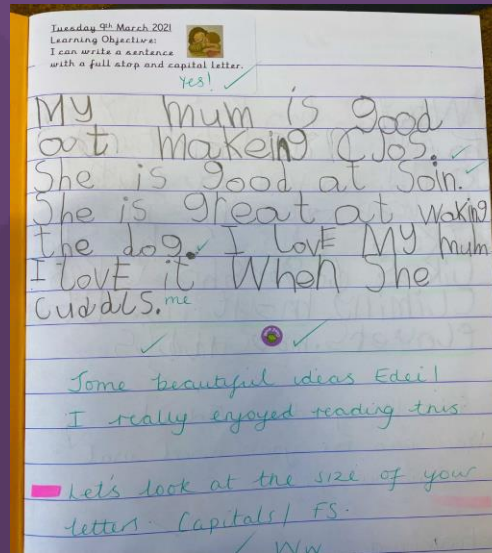 Tuesday 9th March 2021
Learning Objective:
I can write a sentence
with a full stop and capital letter.
Yes!
My mum is good
at makeing CJoS.
She is good at Soin.
She is great at waking
the dog. I LovE My mum
I LovE it When She
cuddls. me
Some beautiful ideas
I really enjoyed reading this
Let's look at the size of your
letters. Capitals/ FS.
Ww